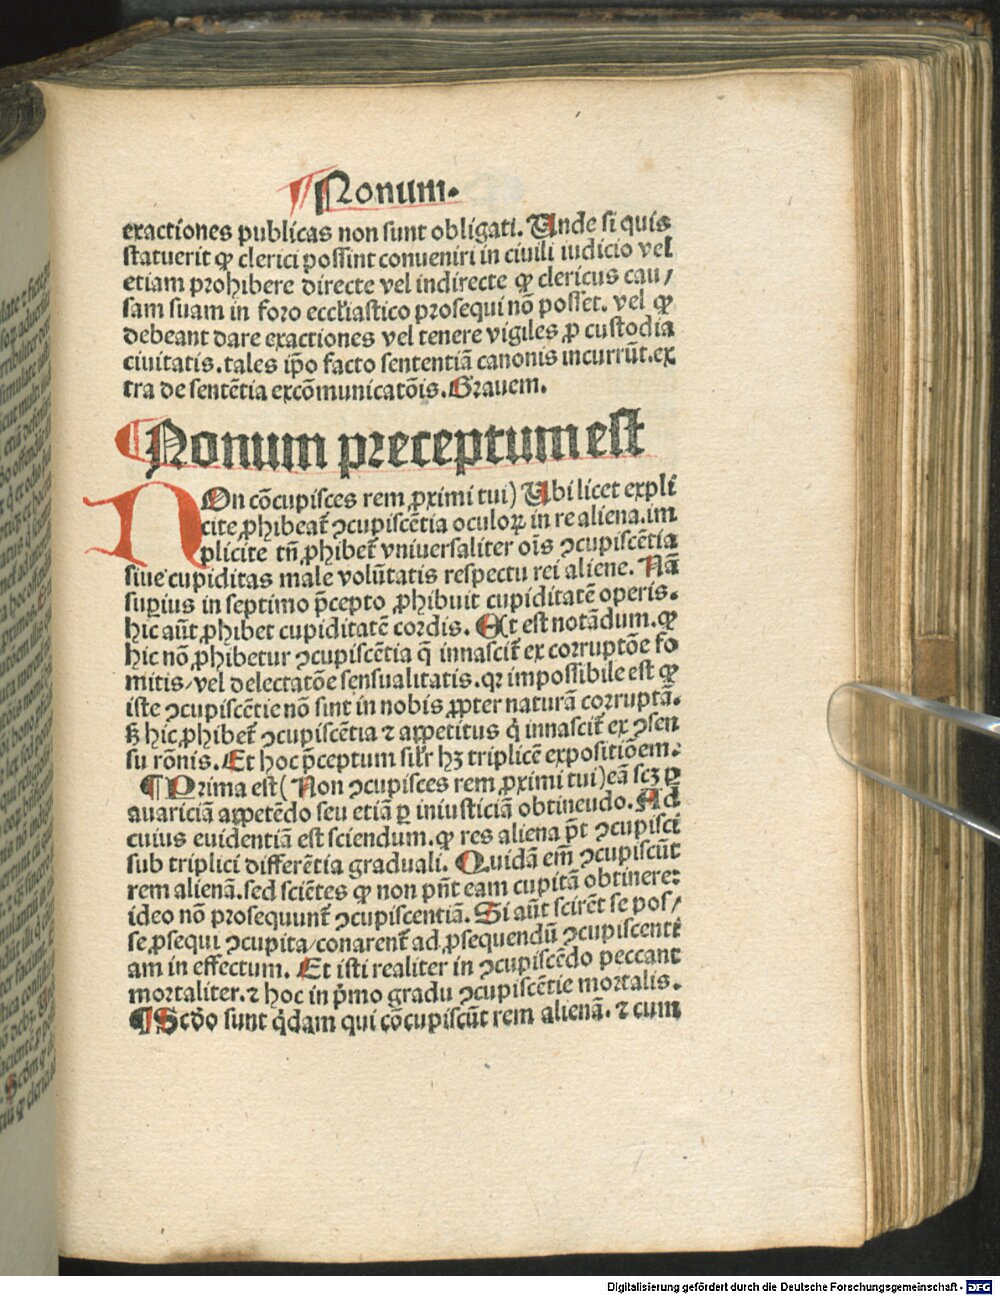 ¶Nonum.
exactiones publicas non sunt obligati. Unde si quis
statuerit ꝙ clerici possint conueniri in ciuili iudicio vel
etiam prohibere directe vel indirecte ꝙ clericus cau/
sam suam in foro eccl'iastico prosequi nō posset. vel ꝙ
debeant dare exactiones vel tenere vigiles ꝓ custodia
ciuitatis. tales ip̄o facto sententiā canonis incurrūt. ex
tra de sentētia excōmunicatōis. Grauem.
¶Nonum preceptum est
NOn cōcupisces rem ꝓximi tui) Ubi licet expli
cite ꝓhibeat̄ ꝯcupiscētia oculoꝝ in re aliena. im
plicite tn̄ ꝓhibet̄ vniuersaliter oīs ꝯcupiscētia
siue cupiditas male volūtatis respectu rei aliene. Nā
suꝑius in septimo p̄cepto ꝓhibuit cupiditatē operis.
hic aūt ꝓhibet cupiditatē cordis. Et est notādum. ꝙ
hic nō ꝓhibetur ꝯcupiscētia q̄ innascit̄ ex corruptōe fo
mitis/ vel delectatōe sensualitatis. qꝛ impossibile est ꝙ
iste ꝯcupiscētie nō sint in nobis ꝓpter naturā corruptā.
ß hic ꝓhibet̄ ꝯcupiscētia ⁊ appetitus q̇ innascit̄ ex ꝯsen
su rōnis. Et hoc p̄ceptum sil'r hꝫ triplicē expositiōem.
¶Prima est (Non ꝯcupisces rem ꝓximi tui) eā scꝫ ꝑ
auariciā appetēdo seu etiā ꝑ iniusticiā obtinendo. Ad
cuius euidentiā est sciendum. ꝙ res aliena p̄t ꝯcupisci
sub triplici differētia graduali. Quidā em̄ ꝯcupiscūt
rem alienā. sed sciētes ꝙ non pn̄t eam cupitā obtinere:
ideo nō prosequunt̄ ꝯcupiscentiā. Si aūt scirēt se pos/
se ꝓsequi ꝯcupita/ conarent̄ ad ꝓsequendū ꝯcupiscenti
am in effectum. Et isti realiter in ꝯcupiscēdo peccant
mortaliter. ⁊ hoc in p̄mo gradu ꝯcupiscētie mortalis.
¶Scḋo sunt q̇dam qui cōcupiscūt rem alienā. ⁊ cum
Digitalisierung gefördert durch die Deutsche Forschungsgemeinschaft - DFG